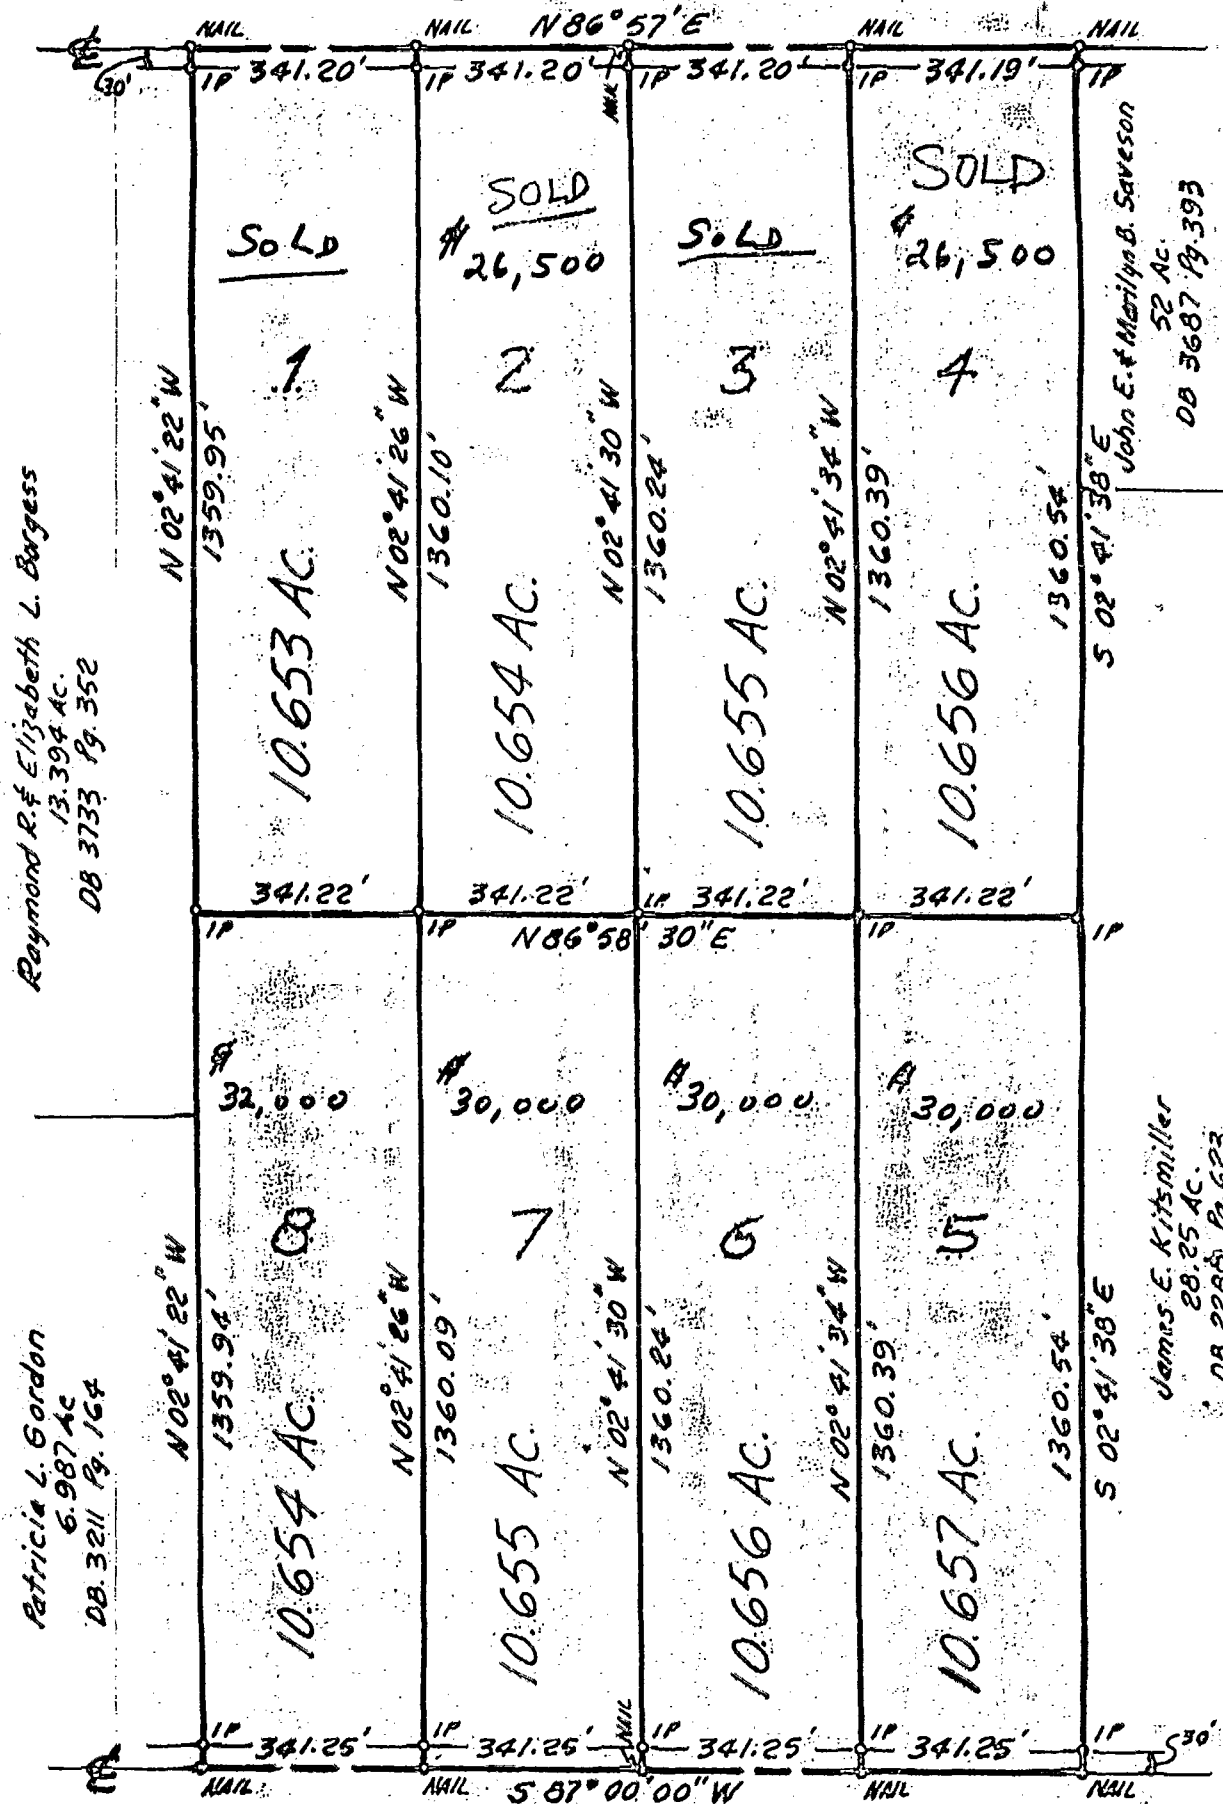 NAIL NAIL N 86° 57' E NAIL NAIL
30' IP 341.20' IP 341.20' IP 341.20' IP 341.19' IP
NAIL
SOLD
1
N 02° 41' 22" W
1359.95'
10.653 AC.
SOLD
$ 26,500
2
N 02° 41' 26" W
1360.10'
10.654 AC.
SOLD
3
N 02° 41' 30" W
1360.24'
10.655 AC.
SOLD
$ 26,500
4
N 02° 41' 34" W
1360.39'
10.656 AC.
1360.54'
S 02° 41' 38" E
John E. & Marilyn B. Saveson
52 Ac.
DB 3687 Pg. 393
Raymond R. & Elizabeth L. Burgess
13.394 Ac.
DB 3733 Pg. 352
341.22' 341.22' IP 341.22' 341.22'
IP IP N 86° 58' 30" E IP IP
$ 32,000
8
N 02° 41' 22" W
1359.94'
10.654 AC.
$ 30,000
7
N 02° 41' 26" W
1360.09'
10.655 AC.
$ 30,000
6
N 02° 41' 30" W
1360.24'
10.656 AC.
$ 30,000
5
N 02° 41' 34" W
1360.39'
10.657 AC.
1360.54'
S 02° 41' 38" E
James E. Kitsmiller
28.25 Ac.
DB Pg. 623
Patricia L. Gordon
6.987 Ac
DB. 3211 Pg. 164
NAIL
IP 341.25' IP 341.25' IP 341.25' IP 341.25' IP 30'
NAIL NAIL S 87° 00' 00" W NAIL NAIL